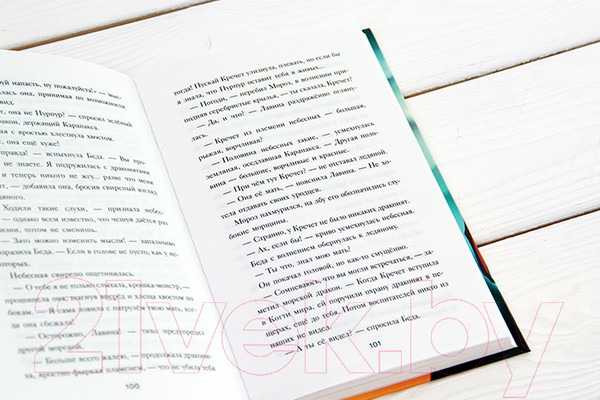 руй напасть, ну пожалуйста!» — мыс-
лась она, принимая по возможности
вид.
т, она не Пурпур? — спросил зелёный
дракон, держащий Карапакса.
с яростью хлестнула хвостом.
, она ещё хуже!
правда! — вспыхнула Беда. — Вы про-
не знаете. Я подружилась с драконятами
и теперь никого не жгу... разве что меня
— добавила она, бросив свирепый взгляд
данного.
Ходили такие слухи, — признала небес-
— однако всем известно, что чешуя даётся раз
потом не сменишь.
— Зато можно изменить мысли! — запальчиво
разила Беда. — Если в голове не пусто, как у не-
которых.
Небесная свирепо ощетинилась.
— О тебе я не только слыхала, крошка-монстр, —
прошипела она, шагнув вперёд и хлеща хвостом по
бокам. — Я сама ловила с патрулём твою мать, ког-
да она сбежала!
— Осторожно, Лавина! — тихо предупредил
другой морской.
— Больше всего жалею, — продолжала дракони-
ха, яростно фыркая пламенем, — что не убила тебя
100
тогда! Пускай Кречет улизнула, плевать, но если бы
я знала, что Пурпур оставит тебя в живых...
— Погоди, — перебил Мороз, в волнении при-
подняв серебристые крылья, — ты сказала, Кречет?
— Да, и что! — Лавина раздражённо огляну-
лась.
— Кречет из племени небесных — большая,
рыжая, ворчливая?
— Половина небесных такие, — усмехнулась
земляная, оседлавшая Карапакса. — Другая поло-
вина — большие, ворчливые и красные.
— При чём тут Кречет? — не отставал ледяной.
— Она её мать, — пояснила Лавина. — Не хо-
тела отдавать своих уродцев.
Мороз нахмурился, на лбу его обозначились глу-
бокие морщины.
— Странно, у Кречет не было никаких драконят.
— Ах, если бы! — криво усмехнулась небесная.
Беда с волнением обернулась к ледяному.
— Ты что, знал мою мать?
Он покачал головой, но как-то смущённо.
— Сомневаюсь, что вы могли встречаться, — за-
метил морской дракон. — Когда Кречет вступила
в Когти мира, ей поручили охрану драконят в пе-
щерах, ещё до тебя. Потом воспитателей никто из
наших не видел...
— А ты её видел? — спросила Беда.
101
21vek.by